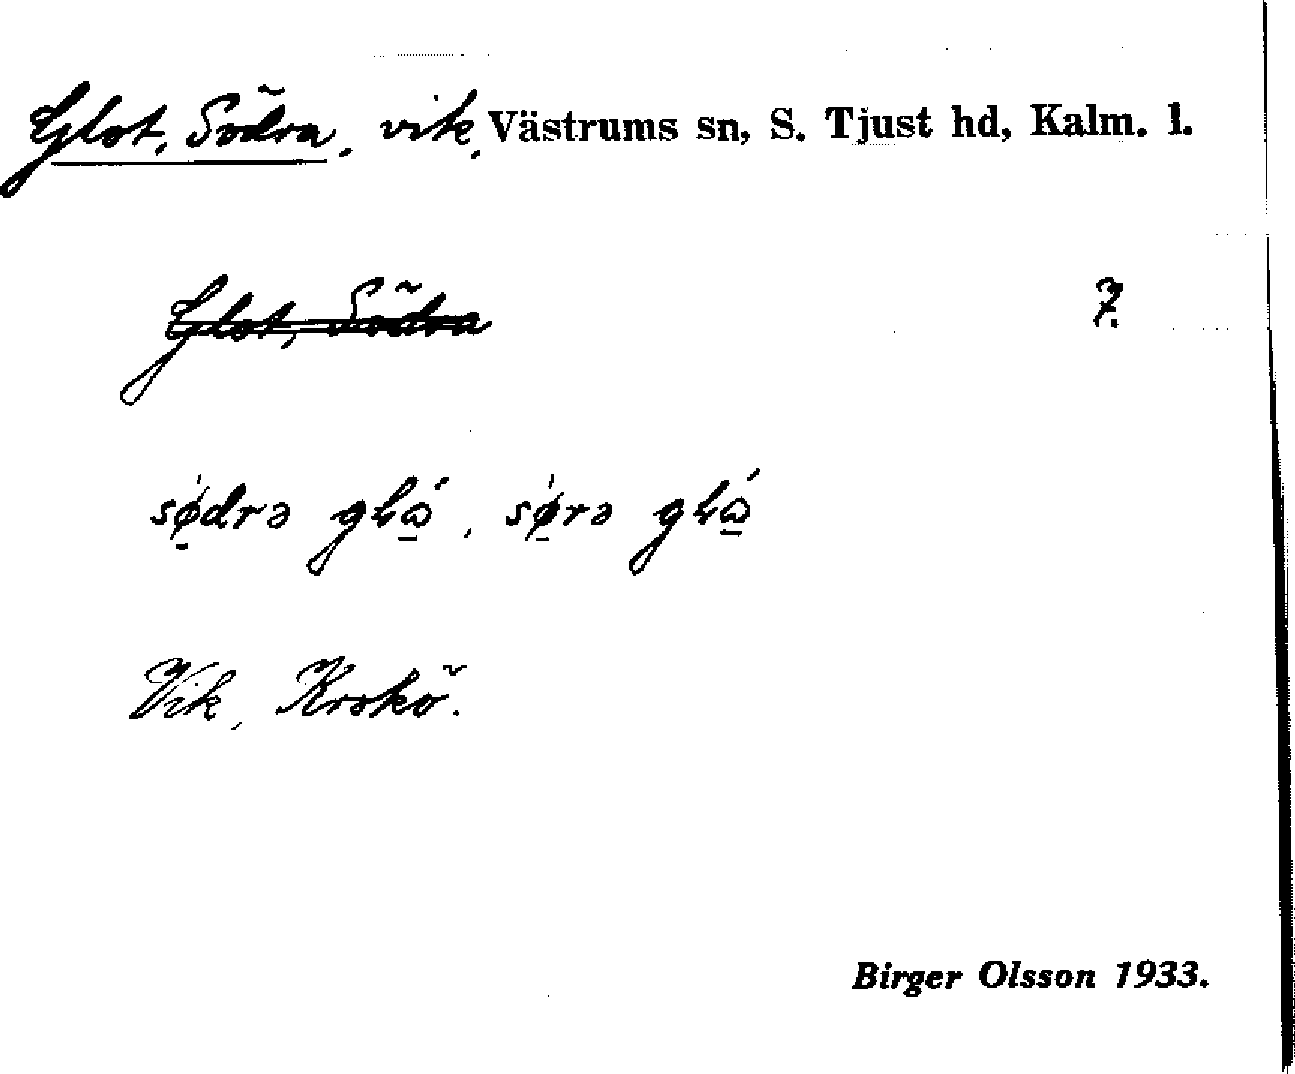 Glot, Södra, vik, Västrums sn, S. Tjust hd, Kalm. l.
Glot, Södra 7.
sødrə , sørə
Vik, Krokö.
Birger Olsson 1933.